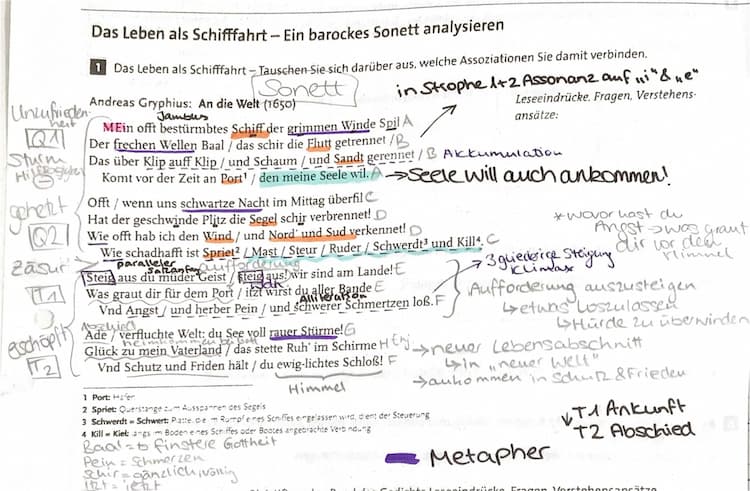 Das Leben als Schifffahrt – Ein barockes Sonett analysieren
1 Das Leben als Schifffahrt – Tauschen Sie sich darüber aus, welche Assoziationen Sie damit verbinden.
Sonett
in Strophe 1+2 Assonanz auf „i" & „e"
Andreas Gryphius: An die Welt (1650)
Leseeindrücke, Fragen, Verstehens-
ansätze:
Jambus
Unzufrieden-
heit
Q1
Sturm
MEin offt bestürmbtes Schiff der grimmen Winde Spil A
Der frechen Wellen Baal / das schir die Flutt getrennet / B
Das über Klip auff Klip / und Schaum / und Sandt gerennet / B Akkumulation
Komt vor der Zeit an Port¹ / den meine Seele wil. A → Seele will auch ankommen!
gehetzt
Q2
Offt / wenn uns schwartze Nacht im Mittag überfil C
Hat der geschwinde Plitz die Segel schir verbrennet! D
Wie offt hab ich den Wind / und Nord' und Sud verkennet! D
Wie schadhafft ist Spriet² / Mast / Steur / Ruder / Schwerdt³ und Kill⁴. C
* wovor hast du
Angst → was graut
dir vor dem
Himmel
Zäsur
paralleler
Satzanfang
Aufforderung
T1
Steig aus du müder Geist / steig aus! wir sind am Lande! E
Was graut dir für dem Port / itzt wirst du aller Bande E
Alliteration
Vnd Angst / und herber Pein / und schwerer Schmertzen loß. F
→ 3gliedrige Steigung
Klimax
Aufforderung auszusteigen
↳ etwas loszulassen
↳ Hürde zu überwinden
erschöpft
T2
Abschied
Ade / verfluchte Welt: du See voll rauer Stürme! G
Glück zu mein Vaterland / das stette Ruh' im Schirme H
Vnd Schutz und Friden hält / du ewig-lichtes Schloß! F
→ neuer Lebensabschnitt
↳ in „neuer Welt"
→ ankommen in Schutz & Frieden
Himmel
1 Port: Hafen
2 Spriet: Querstange zum Ausspannen des Segels
3 Schwerdt = Schwert: Platte, die im Rumpf eines Schiffes eingelassen wird, dient der Steuerung
4 Kill = Kiel: längs im Boden eines Schiffes oder Bootes angebrachte Verbindung
↓ T1 Ankunft
T2 Abschied
Baal = finstere Gottheit
Pein = Schmerzen
schir = gänzlich, völlig
itzt = jetzt
Metapher